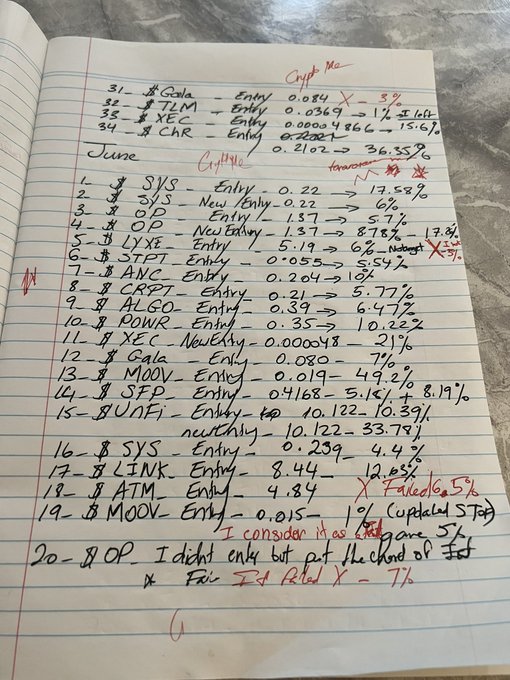 Crypto Me
31 - $ Gala - Entry 0.084 X - 3%
32 - $ TLM - Entry 0.0369 → 1% I left
33 - $ XEC - Entry 0.00004866 → 15.6%
34 - $ CHR - Entry
0.2102 → 36.35%
June
1 - $ SYS - Entry - 0.22 → 17.58%
2 - $ SYS - New Entry - 0.22 → 6%
3 - $ OP Entry - 1.37 → 5.7%
4 - $ OP - New Entry - 1.37 → 8.78% - 17.2%
5 - $ LYXE - Entry - 5.19 → 6% X
6 - $ STPT - Entry 0.055 → 5.54%
7 - $ ANC - Entry 0.204 → 10%
8 - $ CRPT - Entry 0.21 → 5.77%
9 - $ ALGO - Entry - 0.39 → 6.47%
10 - $ POWR - Entry - 0.35 → 10.22%
11 - $ XEC - New Entry - 0.000048 - 21%
12 - $ Gala - Entry - 0.080 - 7%
13 - $ MOOV - Entry - 0.019 - 49.2%
14 - $ SFP - Entry - 0.4168 - 5.18% + 8.19%
15 - $ UNFi - Entry - 10.122 - 10.39%
new Entry - 10.122 - 33.78%
16 - $ SYS - Entry - 0.239 - 4.4%
17 - $ LINK - Entry - 8.44 - 12.63%
18 - $ ATM - Entry - 4.84 X Failed 6.5%
19 - $ MOOV - Entry - 0.015 - 1% (updated STOP)
I consider it as gave 5%
20 - $ OP - I didnt enter but put the chard of
Fair It failed X - 7%